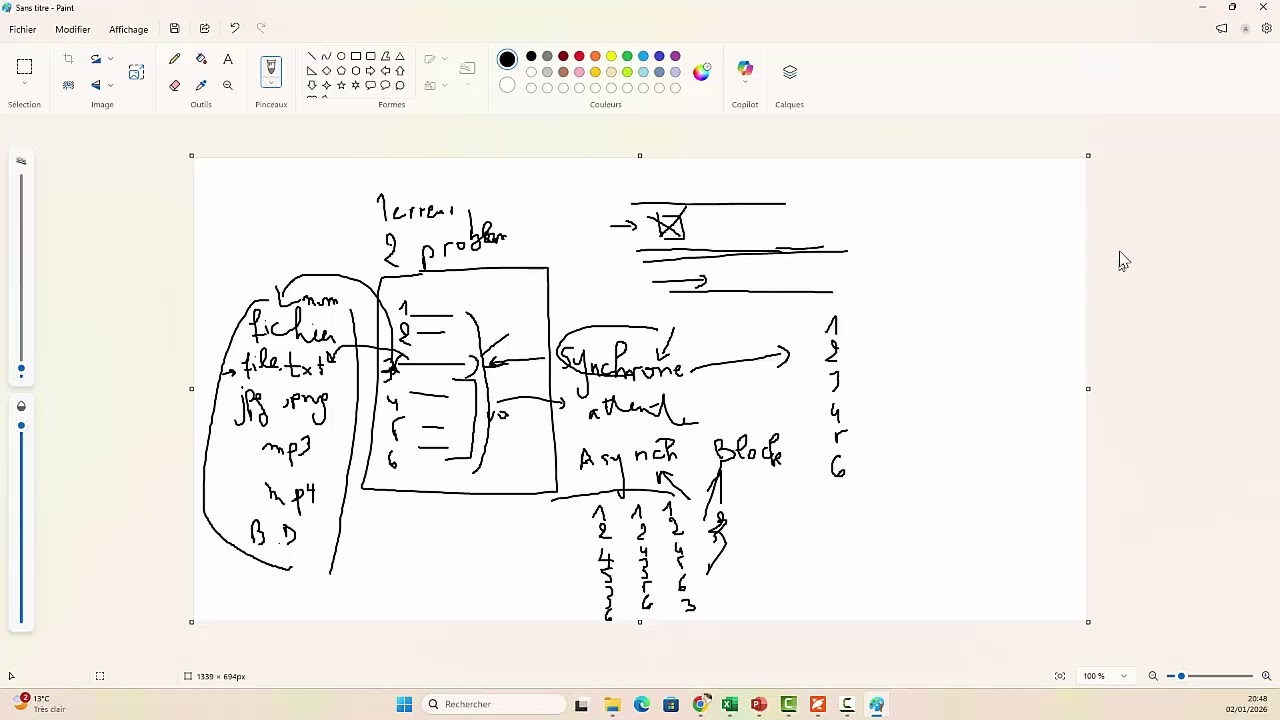 Sans titre - Paint
Fichier
Modifier
Affichage
Sélection
Image
Outils
Pinceaux
Formes
Couleurs
Copilot
Calques
1 erreur
2 problem
nom
fichier
file.txt
jpg .png
mp3
mp4
B.D
1
2
3
4
5
6
Synchrone
attende
Asynch
Block
1 1 1
2 2 2
4 4 4
5 3 5
3 5 6
6 6 3
1
2
3
4
5
6
1339 × 694px
100 %
2
13°C
Très clair
Rechercher
20:48
02/01/2026